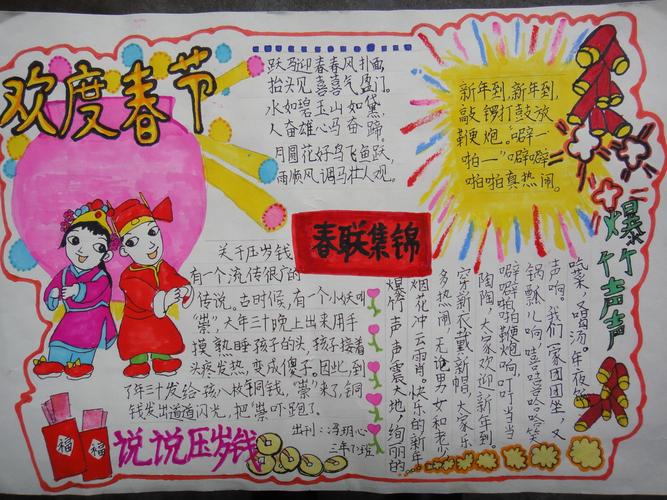 欢度春节
跃马迎春春风扑面
抬头见喜喜气盈门。
水如碧玉山如黛,
人奋雄心马奋蹄
月圆花好鸟飞鱼跃,
雨顺风调马壮人观。
新年到,新年到,
敲锣打鼓放
鞭炮。"噼一
啪一"噼噼
啪啪真热闹。
春联集锦
爆竹声声
关于压岁钱
有一个流传很广的
传说。古时候,有一个小妖叫
"祟",大年三十晚上出来用手
摸熟睡孩子的头,孩子接着
头疼发热,变成傻子。因此,到
了年三十发给孩八枚铜钱,"祟"来了,铜
钱发出道道闪光,把"祟"吓跑了。
爆竹声声震大地,绚丽的
烟花冲云雨霄。快乐的新年
多热闹。无论男女和老少,
穿新衣戴新帽,大家乐
陶陶,大家欢迎新年到。
噼噼啪啪鞭炮响,叮叮当当
锅瓢儿响嘻嘻哈哈笑
声响。我们一家团团坐,又
吃菜,喝汤年夜饭
福
福
说说压岁钱
出刊:玥心
三年班